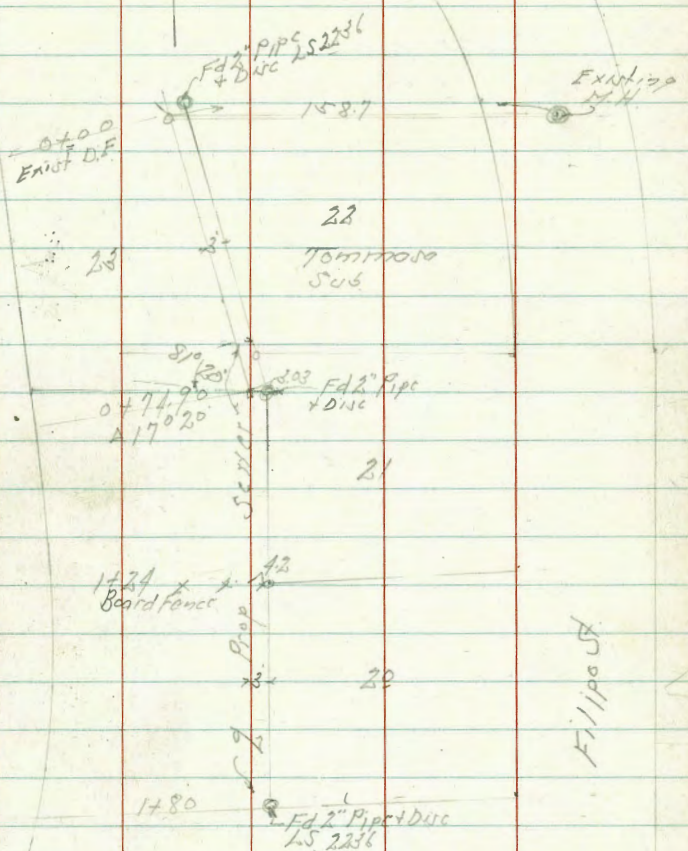 Fd 2" Pipe LS 2236
+ Disc
Existing
M.H.
158.7
0+00
Exist D.F.
22
23
3
Tommaso
Sub
81° 20'
3.03
Fd 2" Pipe
+ Disc
0+74.90
Δ 17° 20'
Sewer
21
4.2
1+24
Board Fence
Prop
3
20
Fillipo St
1+80
Fd 2" Pipe + Disc
LS 2236